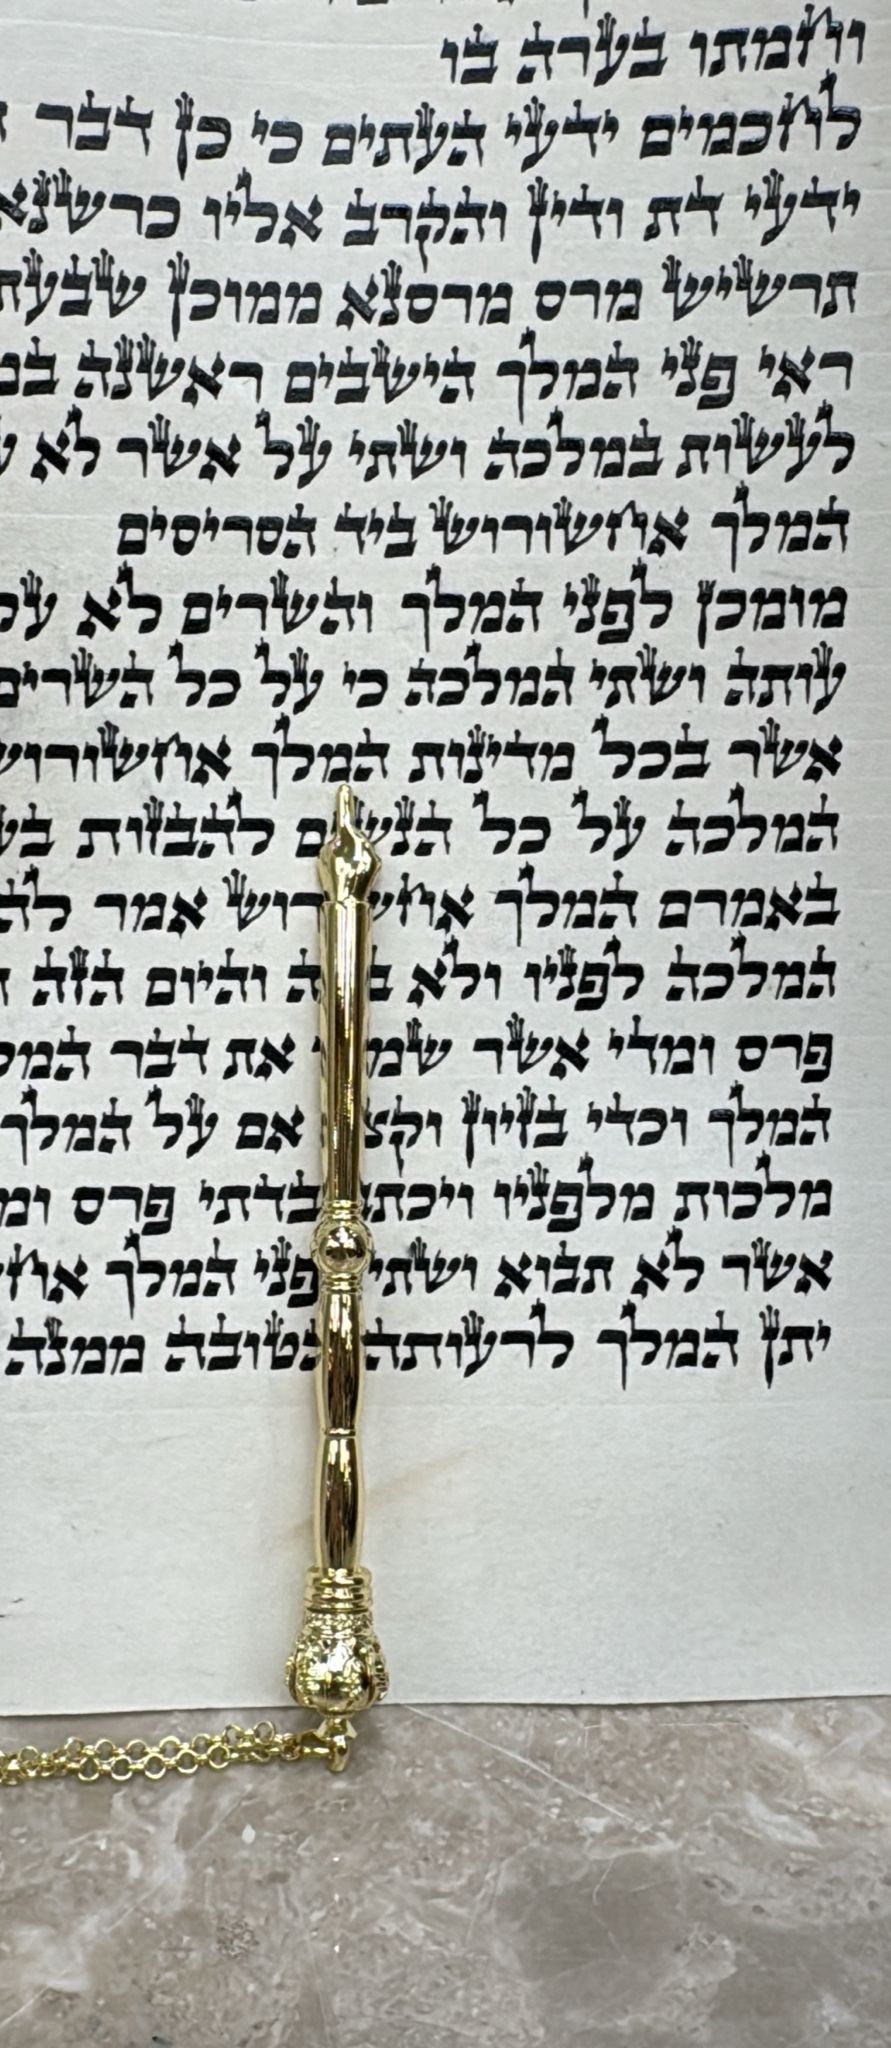 וחמתו בערה בו
לחכמים ידעי העתים כי כן דבר
ידעי דת ודין והקרב אליו כרשנא
תרשיש מרס מרסנא ממוכן שבעת
ראי פני המלך הישבים ראשנה
לעשות במלכה ושתי על אשר לא
המלך אחשורוש ביד הסריסים
מומכן לפני המלך והשרים לא על
עותה ושתי המלכה כי על כל השרים
אשר בכל מדינות המלך אחשורוש
המלכה על כל הנשים להבזות
באמרם המלך אחשורוש אמר
המלכה לפניו ולא באה והיום הזה
פרס ומדי אשר שמעו את דבר
המלך וכדי בזיון וקצף אם על המלך
מלכות מלפניו ויכתב בדתי פרס
אשר לא תבוא ושתי לפני המלך
יתן המלך לרעותה הטובה ממנה